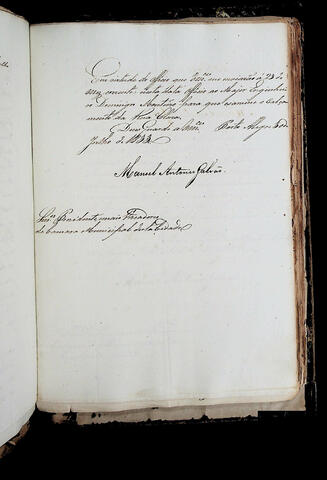 Em virtude do officio que Vmces me enviarão á 23 do
mez , nesta data officio ao Major Engenheiro
Domingos Monteiro para que examine o
da Rua Clara.
Deos Guarde a Vmces Porto Alegre
Julho de 1833
Manuel Antonio Galvão
Snres Presidente, e mais Vereadores
da Camara Municipal desta Cidade